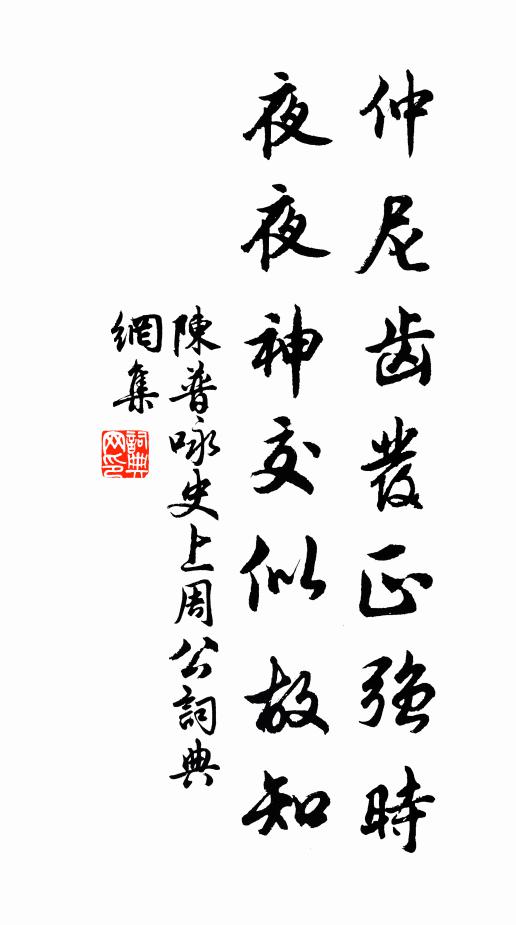 仲尼齿發正強時
夜夜神交似故知
陳普咏史上周公詞典
網集
詞典
网印